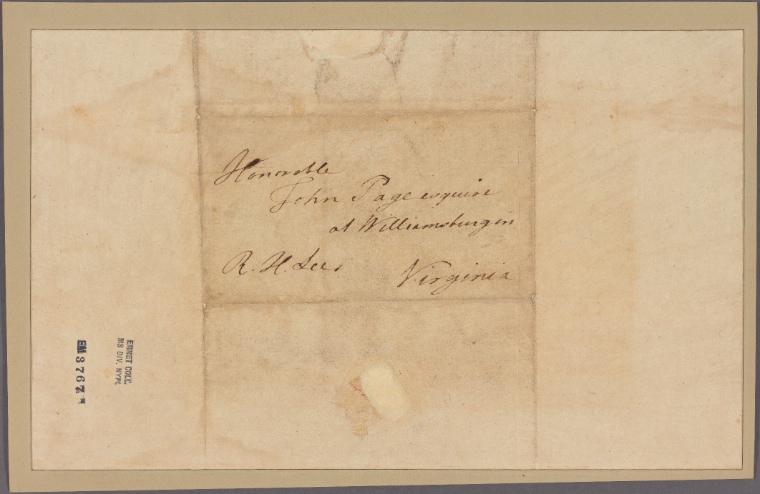 Honorable
John Page esquire
at Williamsburg in
R. H. Lee,
Virginia
EMMET COLL.
MS DIV. NYPL
EM 3767